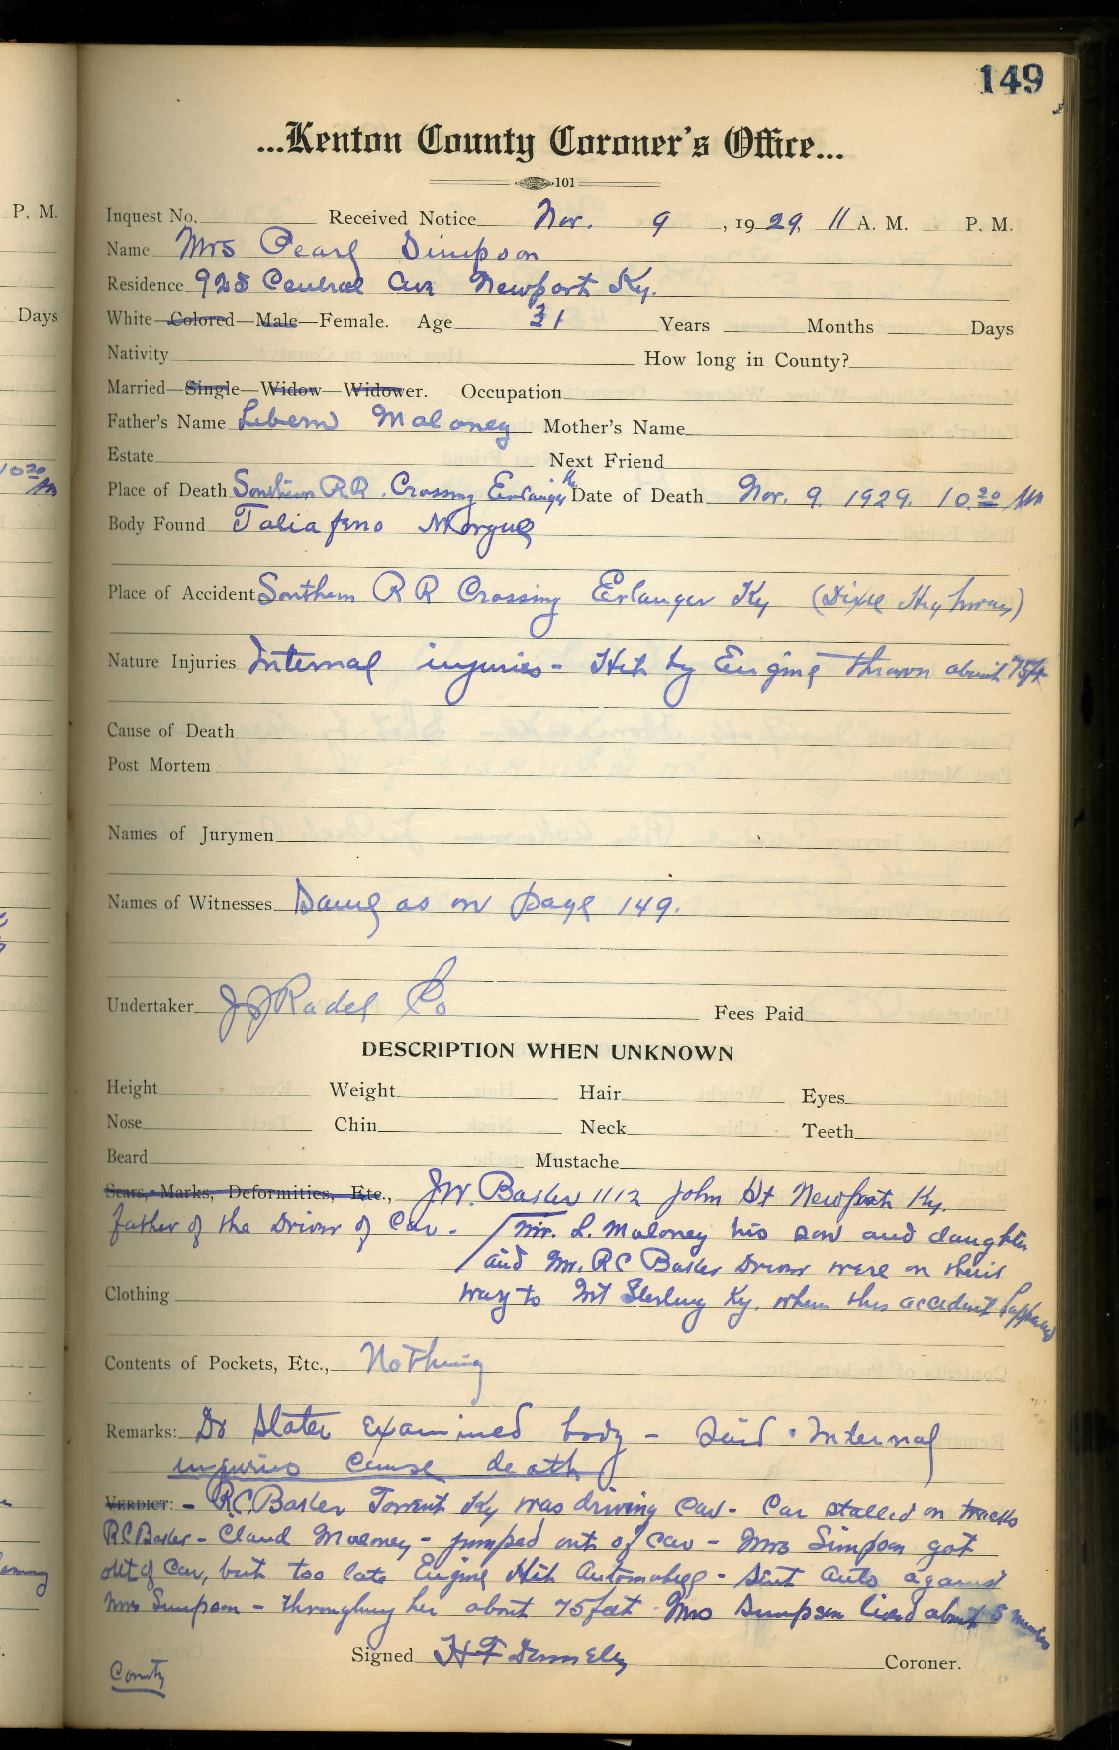 149
...Kenton County Coroner's Office...
101
Inquest No. Received Notice Nov. 9, 1929, 11 A. M. P. M.
Name Mrs Pearl Simpson
Residence 925 Central Ave Newport Ky.
White—Colored—Male—Female. Age 31 Years Months Days
Nativity How long in County?
Married—Single—Widow—Widower. Occupation
Father's Name Maloney Mother's Name
Estate Next Friend
Place of Death Southern RR. Crossing Erlanger Date of Death Nov. 9. 1929. 10.20 AM
Body Found Taliaferro Morgue
Place of Accident Southern R R Crossing Erlanger Ky (Dixie Highway)
Nature Injuries Internal injuries - Hit by Engine thrown about 75ft
Cause of Death
Post Mortem
Names of Jurymen
Names of Witnesses Same as on page 149.
Undertaker Radel Co Fees Paid
DESCRIPTION WHEN UNKNOWN
Height Weight Hair Eyes
Nose Chin Neck Teeth
Beard Mustache
Scars, Marks, Deformities, Etc., JW. Basler 1112 John St Newport Ky.
father of the Driver of Car. Mr. L. Maloney his son and daughter
and Mr. RC Basler Driver were on their
Clothing way to Mt Sterling Ky. when this accident happened
Contents of Pockets, Etc., Nothing
Remarks: Dr Slater Examined body - Said Internal
injuries cause death
VERDICT: - R.C. Basler Torrent Ky was driving car - Car stalled on tracks
RC Basler - Claud Maloney - jumped out of car - Mrs Simpson got
out of Car, but too late Engine Hit Automobile - Sent Auto against
Mrs Simpson - throughing her about 75 feet Mrs Simpson lived about 5 minutes
Signed H F Donnelly Coroner.
County
P. M.
Days
10 20 AM